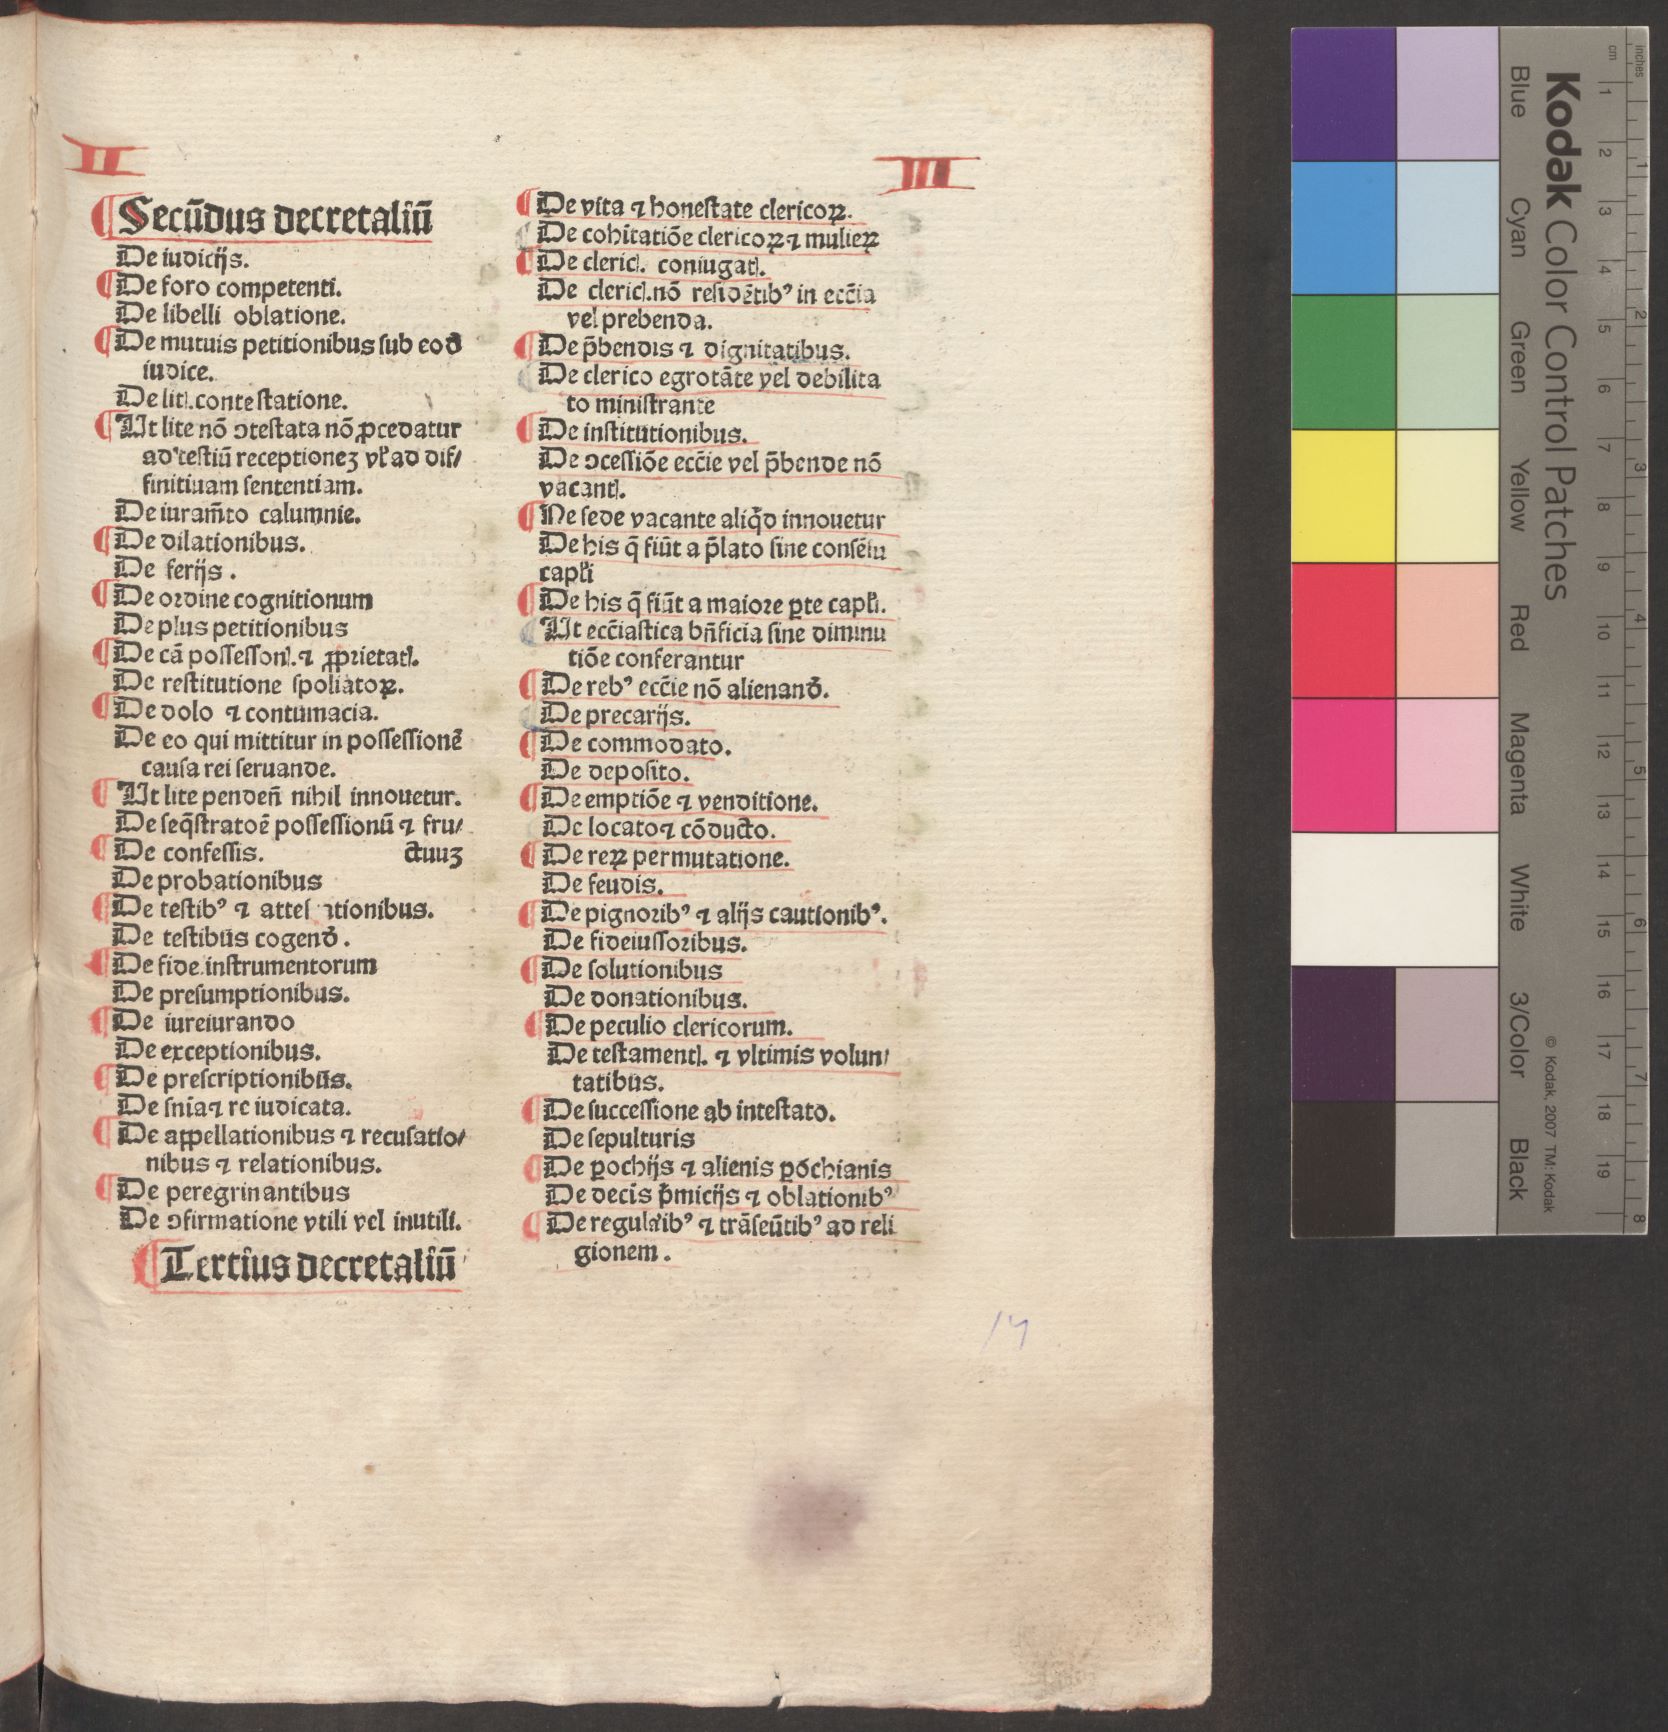 II
¶ Secūdus decretaliū
De iudicijs.
¶ De foro competenti.
De libelli oblatione.
¶ De mutuis petitionibus ſub eod̄
iudice.
De litꝭ. conteſtatione.
¶ Ut lite nō ↄteſtata nō ꝓcedatur
ad teſtiū receptioneʒ vl̓ ad dif/
finitiuam ſententiam.
De iuram̄to calumnie.
¶ De dilationibus.
De ferijs.
¶ De ordine cognitionum
De plus petitionibus
¶ De cā poſſeſſonꝭ. ⁊ ꝓprietatꝭ.
De reſtitutione ſpoliatoꝝ.
¶ De dolo ⁊ contumacia.
De eo qui mittitur in poſſeſſionē
cauſa rei ſeruande.
¶ Ut lite pendeñ nihil innouetur.
De ſeq̄ſtratoē poſſeſſionū ⁊ fru/
¶ De confeſſis. ctuuʒ
De probationibus
¶ De teſtibꝰ ⁊ atteſ tionibus.
De teſtibus cogend̄.
¶ De fide inſtrumentorum
De preſumptionibus.
¶ De iureiurando
De exceptionibus.
¶ De preſcriptionibus.
De ſnīa ⁊ re iudicata.
¶ De appellationibus ⁊ recuſatio/
nibus ⁊ relationibus.
¶ De peregrinantibus
De ↄfirmatione vtili vel inutili.
¶ Tertius decretaliū
III
¶ De vita ⁊ honeſtate clericoꝝ.
¶ De cohītatiōe clericoꝝ ⁊ mulieꝝ
¶ De clericꝭ. coniugatꝭ.
De clericꝭ. nō reſidētibꝰ in eccīa
vel prebenda.
¶ De p̄bendis ⁊ dignitatibus.
¶ De clerico egrotāte vel debilita
to miniſtrante
¶ De inſtitutionibus.
De ↄceſſiōe ecc̄ie vel p̄bende nō
vacantꝭ.
¶ Ne ſede vacante aliq̇d innouetur
De his q̄ fiūt a p̄lato ſine conſēſu
capl̓i
¶ De his q̄ fiūt a maiore ꝑte capl̓i.
¶ Ut ecc̄iaſtica bn̄ficia ſine diminu
tiōe conferantur
¶ De rebꝰ ecc̄ie nō alienand̄.
¶ De precarijs.
¶ De commodato.
De depoſito.
¶ De emptiōe ⁊ venditione.
De locato ⁊ cōducto.
¶ De reꝝ permutatione.
De feudis.
¶ De pignoribꝰ ⁊ alijs cautionibꝰ.
De fideiuſſoribus.
¶ De ſolutionibus
De donationibus.
¶ De peculio clericorum.
De teſtamentꝭ. ⁊ vltimis volun/
tatibus.
¶ De ſucceſſione ab inteſtato.
De ſepulturis
¶ De ꝑochijs ⁊ alienis ꝑōchianis
De decīs p̄micijs ⁊ oblationibꝰ
¶ De regula'ibꝰ ⁊ trāſeūtibꝰ ad reli
gionem.
Kodak Color Control Patches
Blue Cyan Green Yellow Red Magenta White 3/Color Black
© Kodak, 2007 TM: Kodak
cm 1 2 3 4 5 6 7 8 9 10 11 12 13 14 15 16 17 18 19
inches 1 2 3 4 5 6 7 8